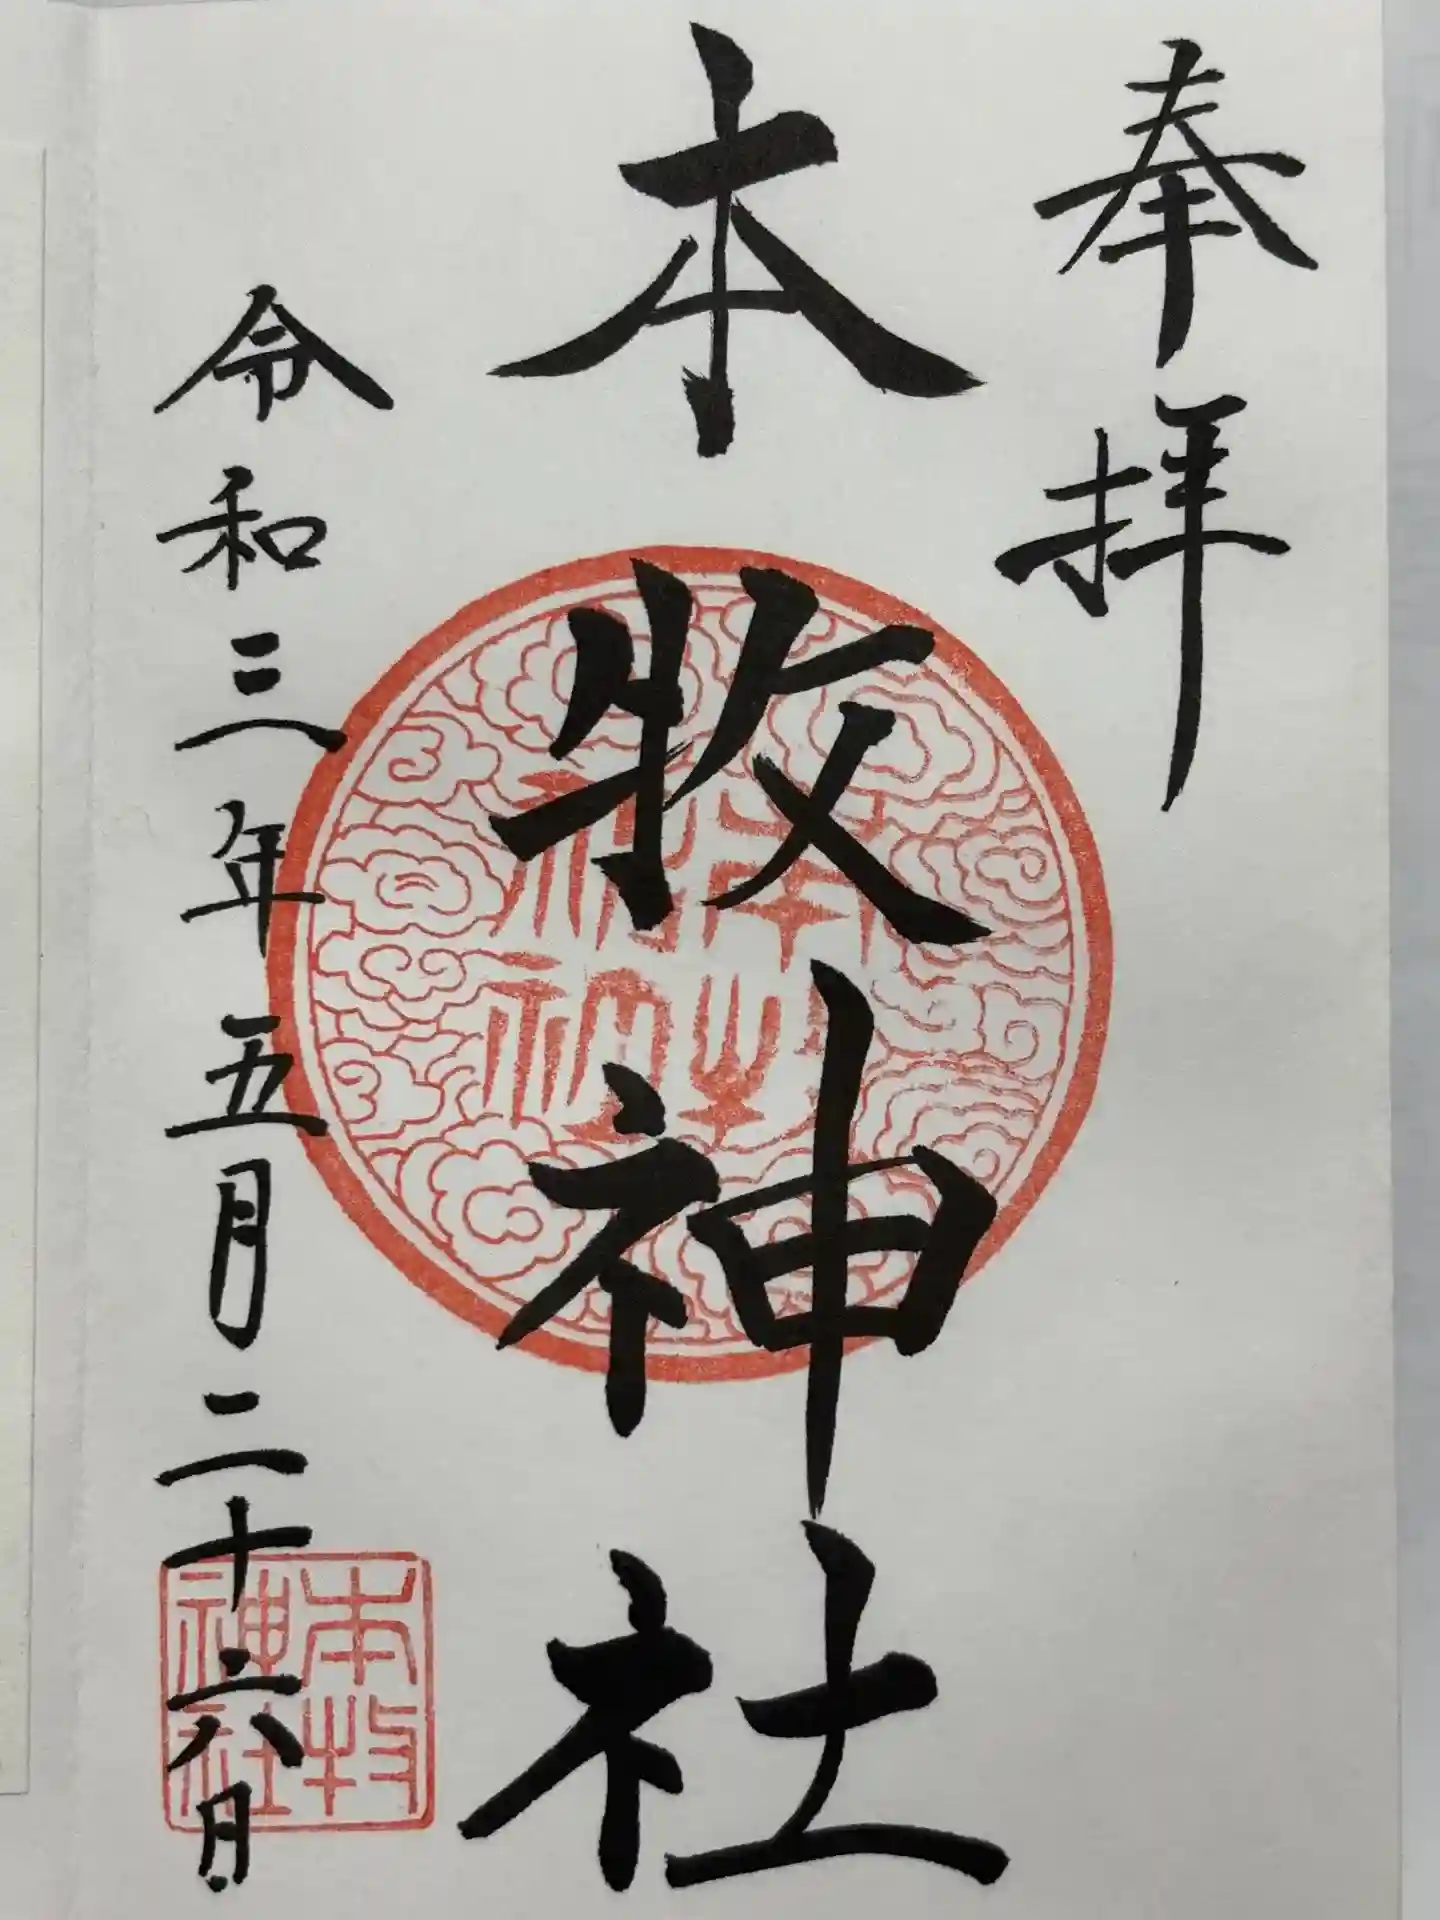 奉拝
本牧神社
令和三年五月二十六日
本牧神社